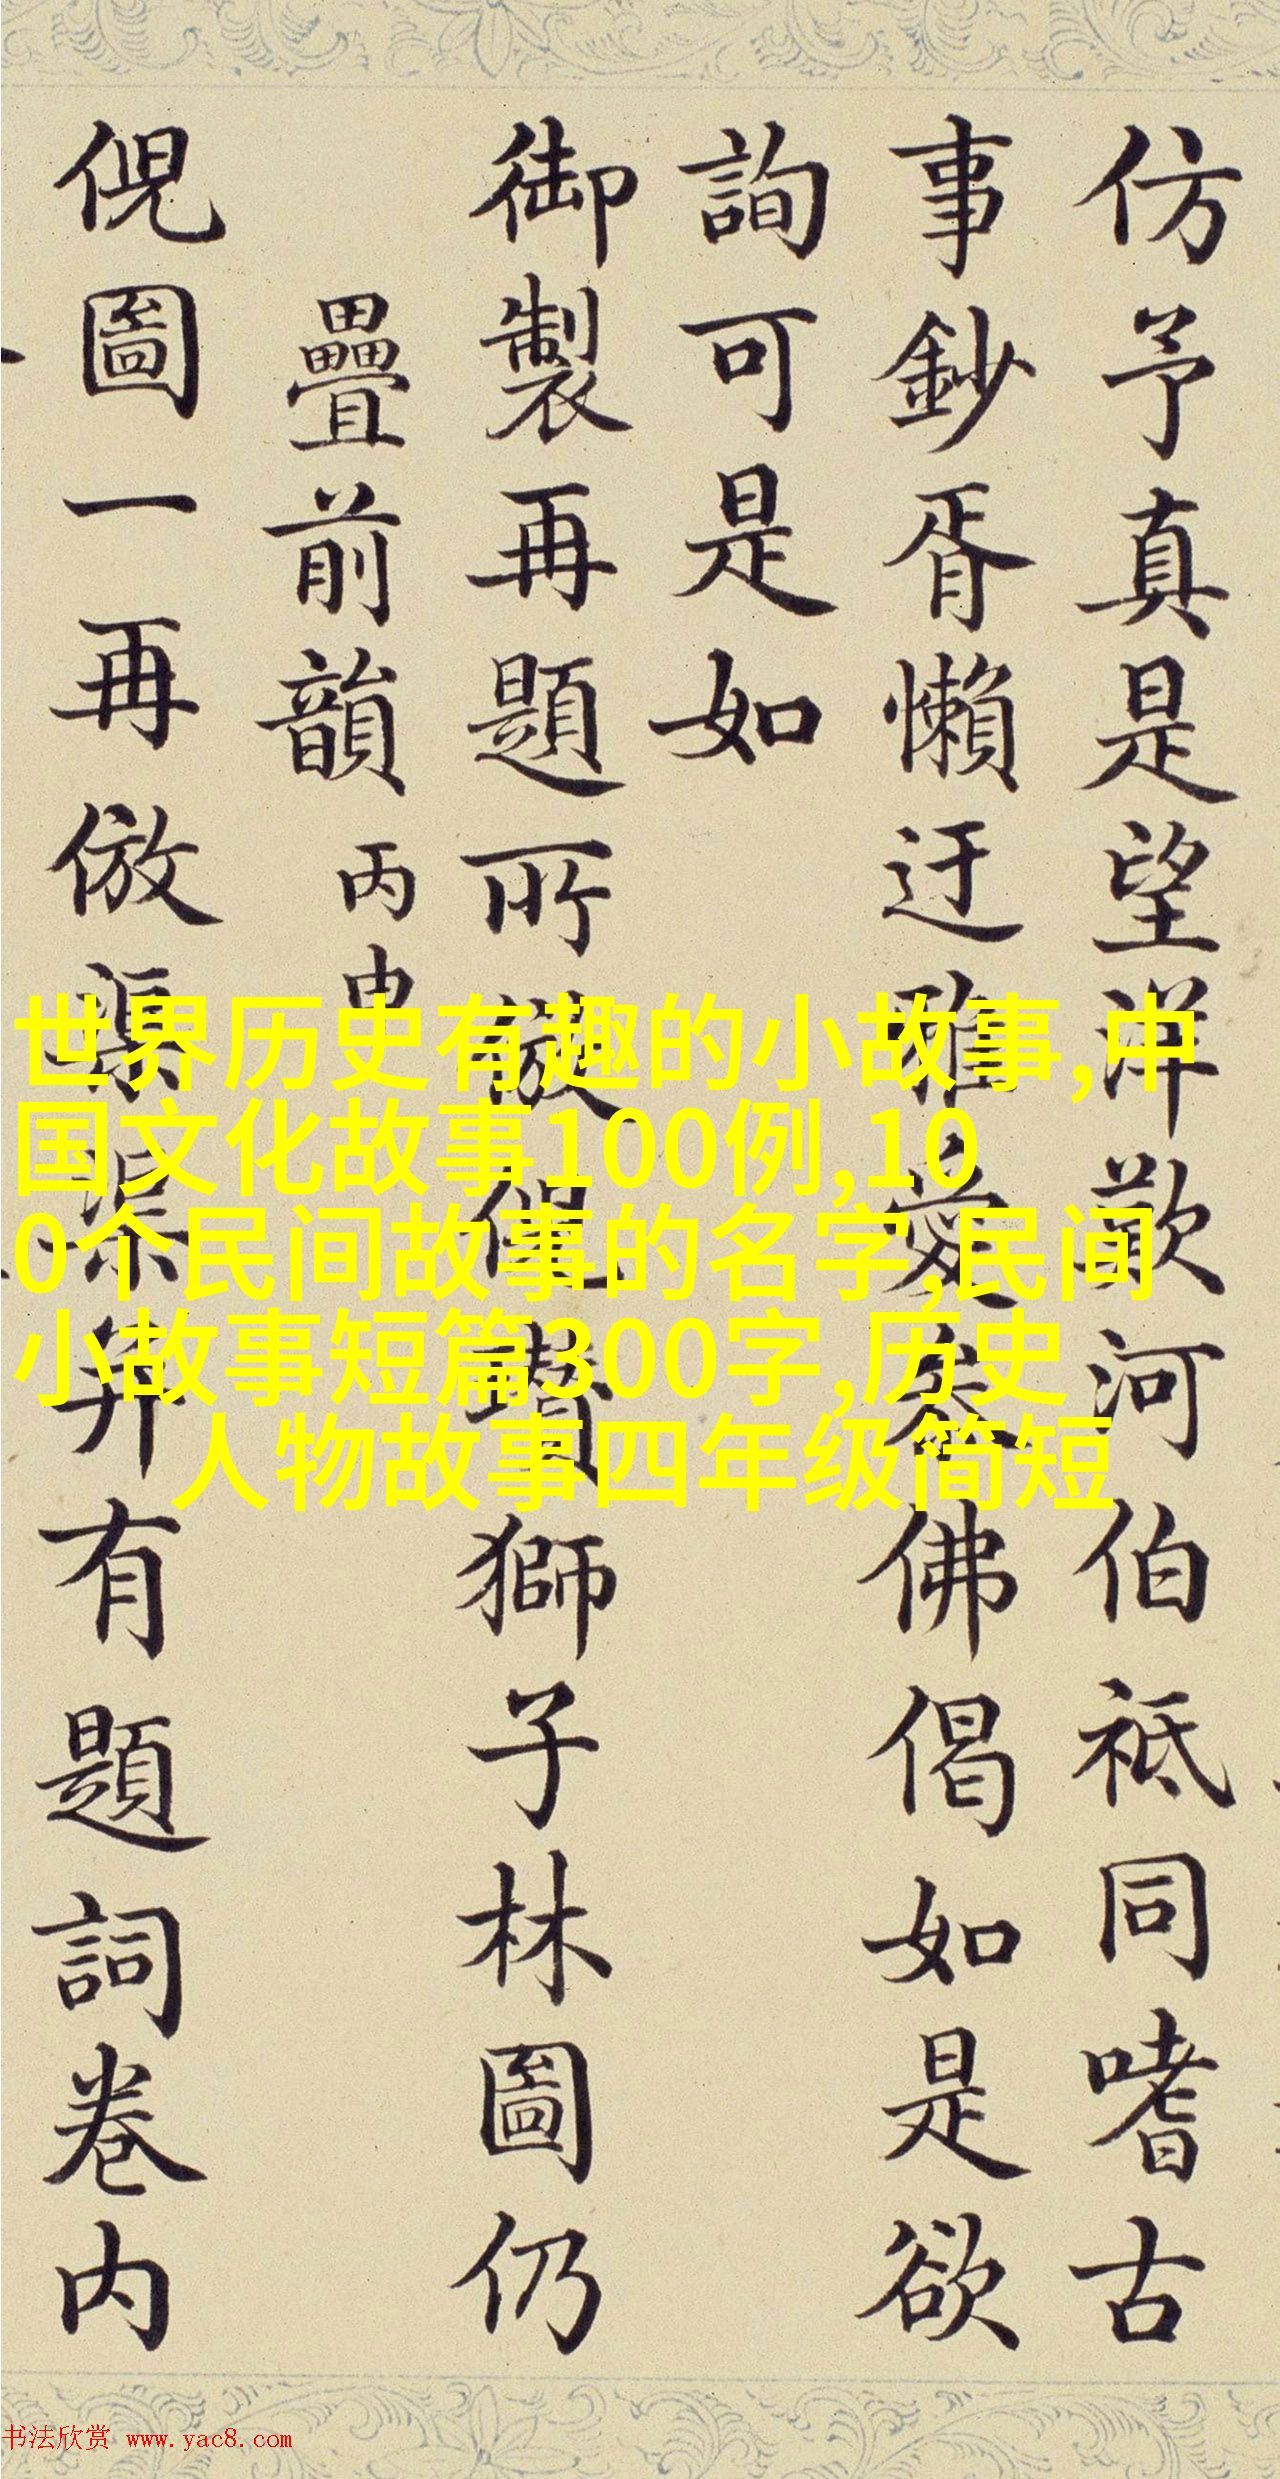 仿予真是望洋歎河伯祗同嗜古
事鈔胥懶迂雅愛參佛偈如是欲
詢可是如
御製再題所倣倪瓚獅子林圖仍
疊前韻 丙申
倪圖一再倣藁渠弆有題詞卷内
世界历史有趣的小故事,中
国文化故事100例,10
0个民间故事的名字,民间
小故事短篇300字,历史
人物故事四年级简短
书法欣赏 www.yac8.com